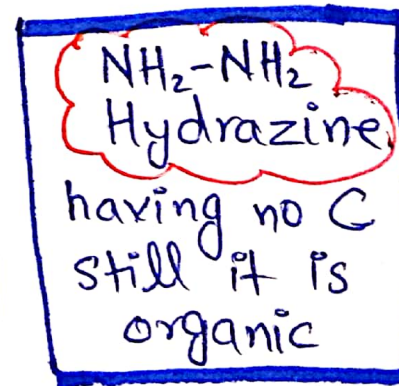 NH₂-NH₂
Hydrazine
having no C
still it is
organic